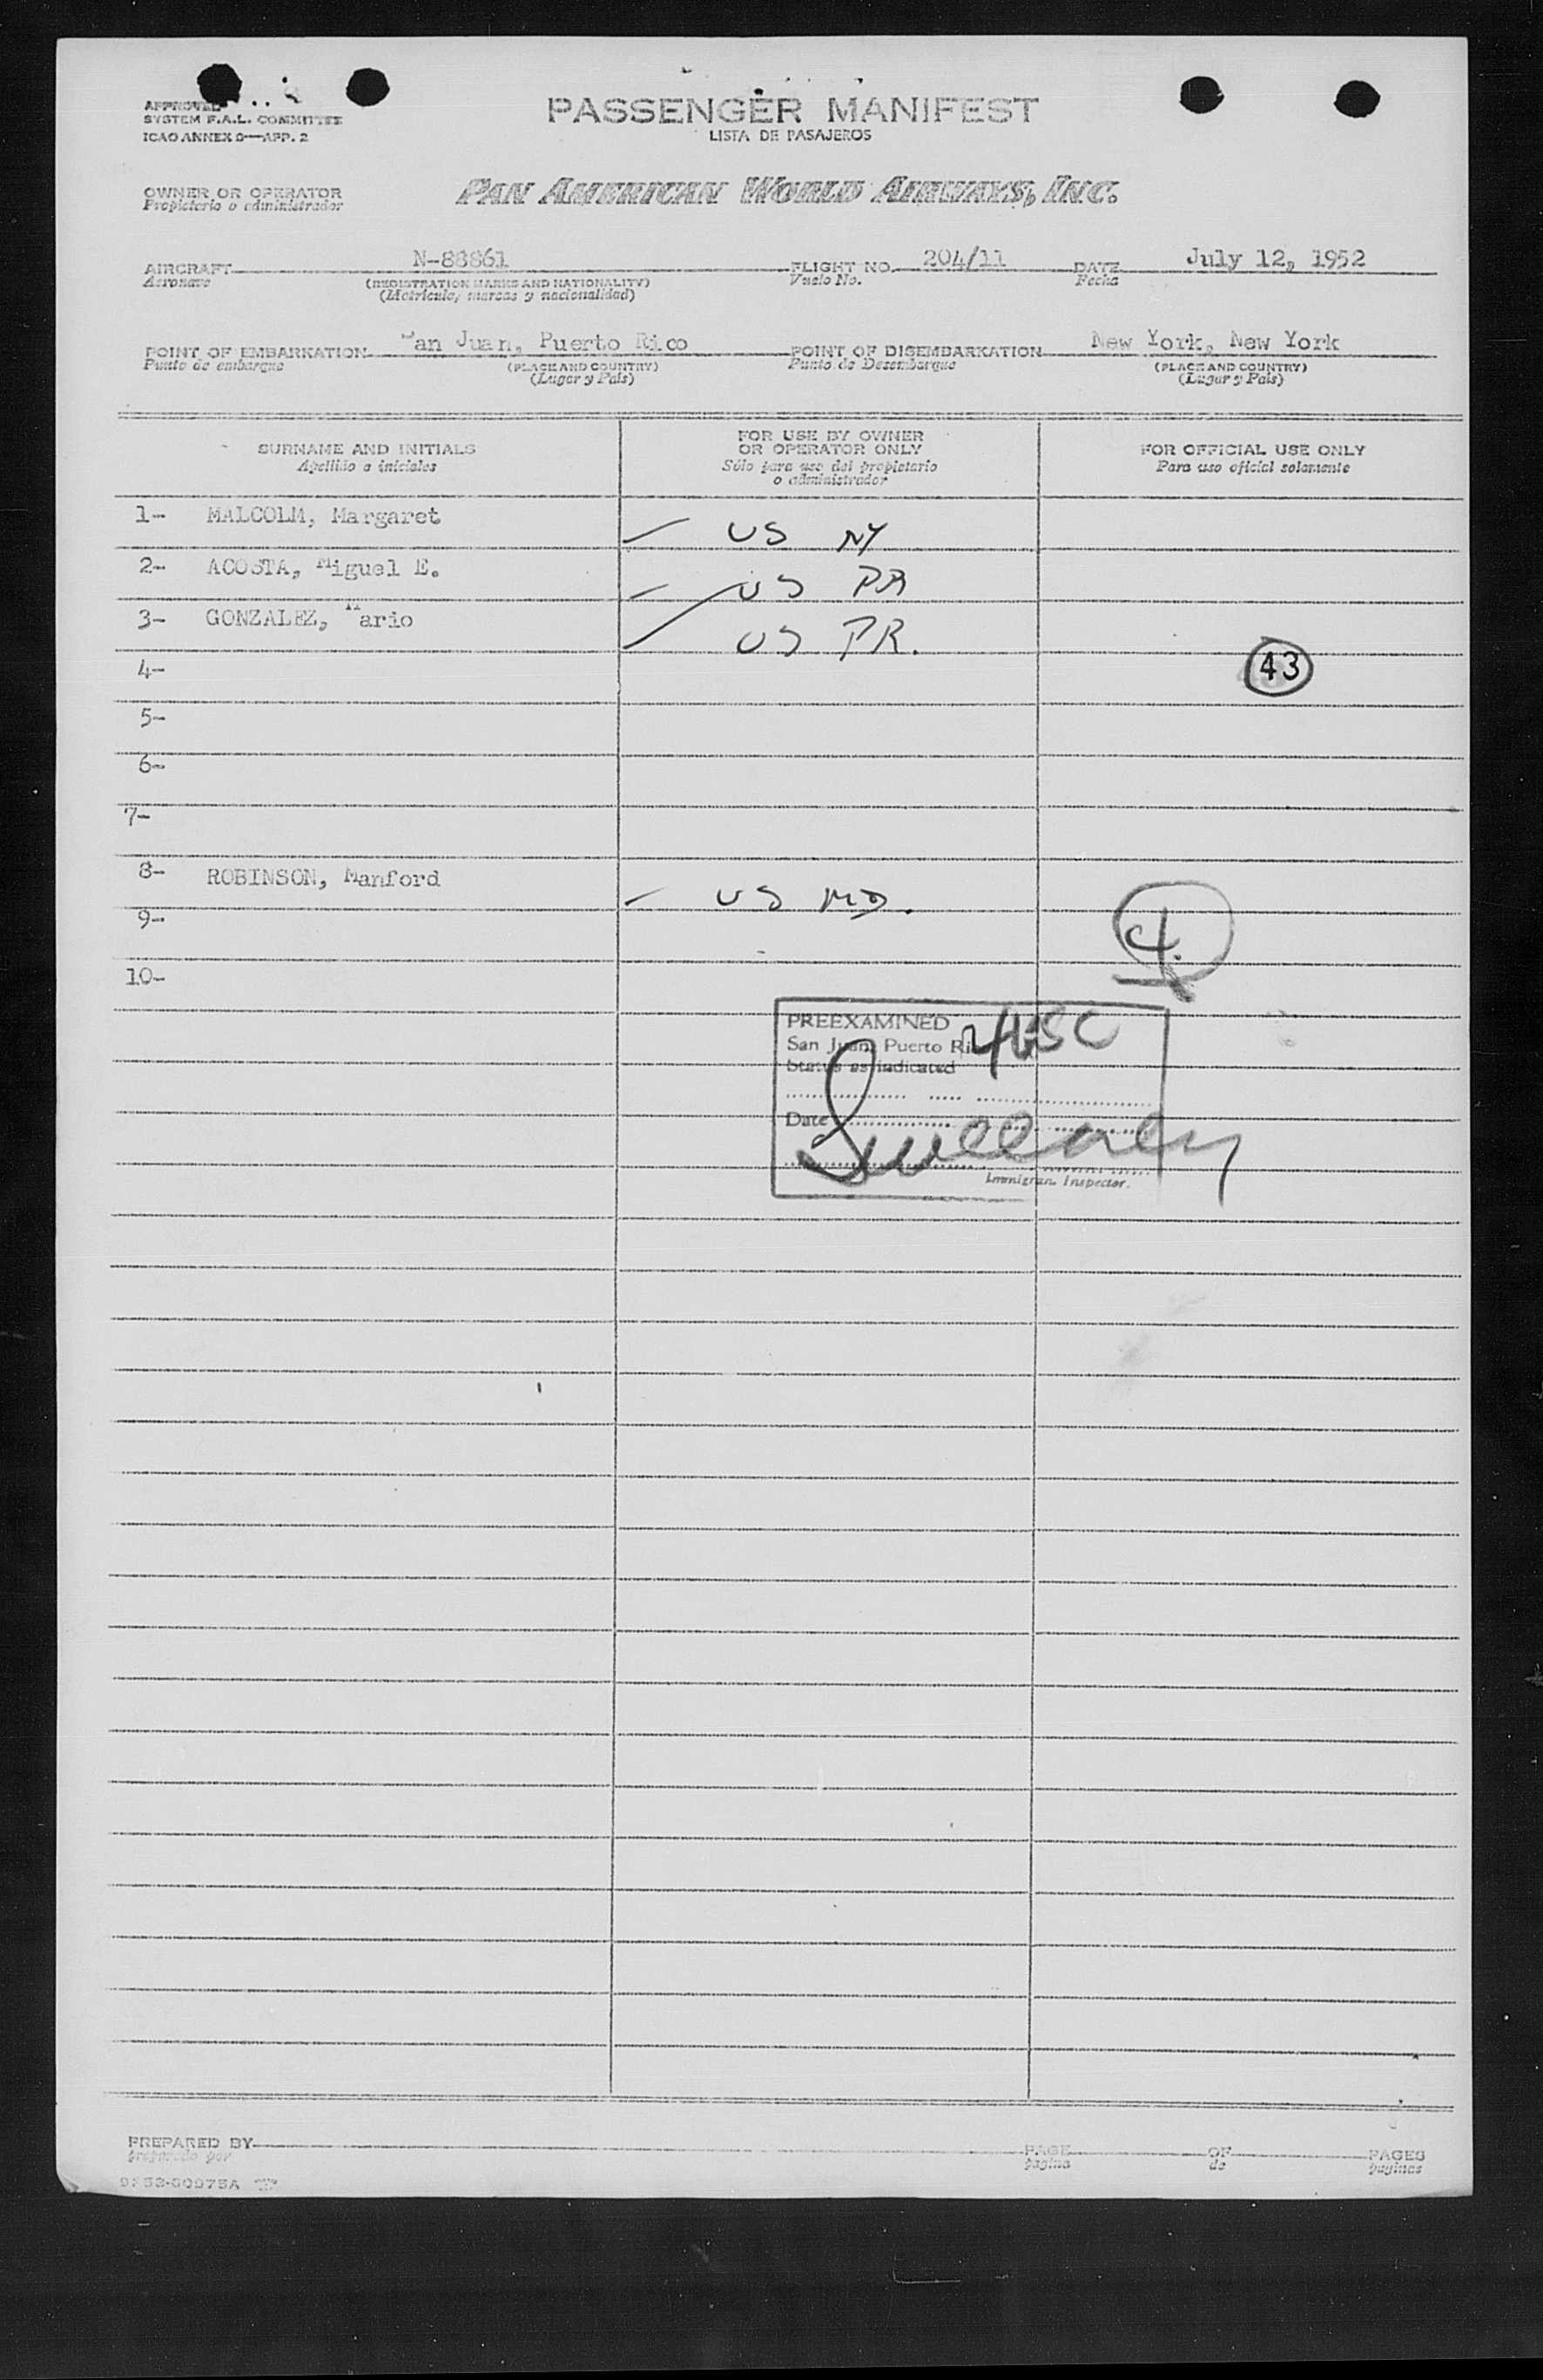 APPROVED
SYSTEM F.A.L. COMMITTEE
ICAO ANNEX 9—APP. 2
PASSENGER MANIFEST
LISTA DE PASAJEROS
OWNER OR OPERATOR
Propietario o administrador
PAN AMERICAN WORLD AIRWAYS, INC.
AIRCRAFT N-88861
Aeronave
(REGISTRATION MARKS AND NATIONALITY)
(Matricula, marcas y nacionalidad)
FLIGHT NO. 204/11
Vuelo No.
DATE July 12, 1952
Fecha
POINT OF EMBARKATION San Juan, Puerto Rico
Punto de embarque
(PLACE AND COUNTRY)
(Lugar y País)
POINT OF DISEMBARKATION New York, New York
Punto de Desembarque
(PLACE AND COUNTRY)
(Lugar y País)
SURNAME AND INITIALS
Apellido e iniciales
FOR USE BY OWNER
OR OPERATOR ONLY
Sólo para uso del propietario
o administrador
FOR OFFICIAL USE ONLY
Para uso oficial solamente
1- MALCOLM, Margaret US NY
2- ACOSTA, Miguel E. US PR
3- GONZALEZ, Mario US PR.
4-
43
5-
6-
7-
8- ROBINSON, Manford US MD.
9-
4.
10-
PREEXAMINED
San Juan, Puerto Rico
Status as indicated
4 USC
Date
Immigran. Inspector.
PREPARED BY
preparado por
PAGE OF PAGES
página de páginas